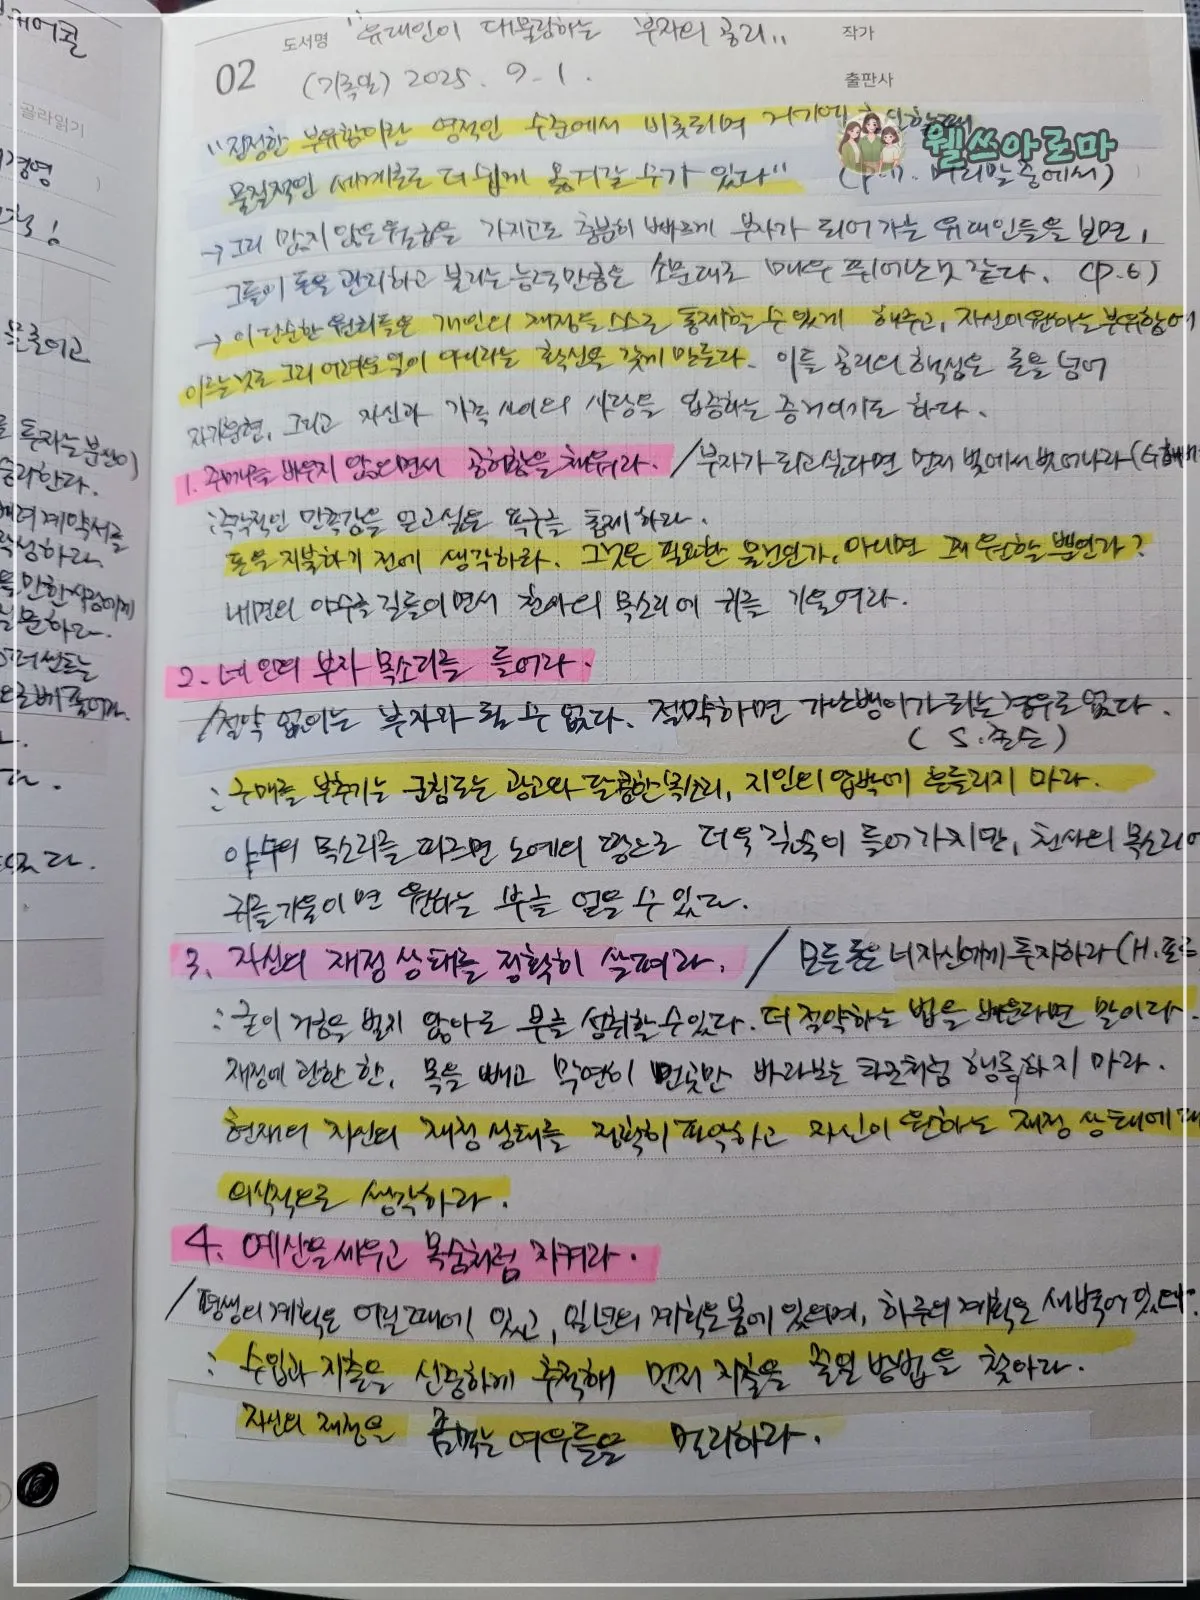 도서명 "유대인이 대물림하는 부자의 공리" 작가
02 (기록일) 2025. 9. 1. 출판사
"진정한 부유함이란 영적인 수준에서 비롯되며 거기에
웰쓰아로마
물질적인 세계로도 더 쉽게 옮겨갈 수가 있다" 머리말 중에서)
→ 그리 많지 않은 월급을 가지고도 충분히 빠르게 부자가 되어가는 유대인들을 보면,
그들이 돈을 관리하고 불리는 능력만큼은 소문대로 매우 뛰어난 것 같다. (p.6)
→ 이 단순한 원칙들은 개인의 재정을 스스로 통제할 수 있게 해주고, 자신이 원하는 부유함에
이르는 것도 그리 어려운 일이 아니라는 확신을 갖게 만든다. 이들 공리의 핵심은 돈을 넘어
자기실현, 그리고 자신과 가족 사이의 사랑을 입증하는 증거이기도 하다.
1. 주머니를 비우지 않으면서 공허함을 채워라. / 부자가 되고 싶다면 먼저 빚에서 벗어나라
: 즉각적인 만족감을 얻고 싶은 욕구를 통제하라.
돈을 지불하기 전에 생각하라. 그것은 필요한 물건인가, 아니면 그저 원할 뿐인가?
내면의 야수를 길들이면서 천사의 목소리에 귀를 기울여라.
2. 내 안의 부자 목소리를 들어라.
/ 절약 없이는 부자가 될 수 없다. 절약하면 가난뱅이가 되는 경우도 없다.
(S.존슨)
: 구매를 부추기는 군침도는 광고와 달콤한 목소리, 지인의 압박에 흔들리지 마라.
야수의 목소리를 따르면 노예의 땅으로 더욱 깊숙이 들어가지만, 천사의 목소리에
귀를 기울이면 원하는 부를 얻을 수 있다.
3. 자신의 재정 상태를 정확히 살펴라. / 모든 돈은 너 자신에게 투자하라 (H.포드
: 굳이 거금을 벌지 않아도 부를 성취할 수 있다. 더 절약하는 법을 배운다면 말이다.
재정에 관한 한, 목을 빼고 막연히 먼 곳만 바라보는 타조처럼 행동하지 마라.
현재의 자신의 재정 상태를 정확히 파악하고 자신이 원하는 재정 상태에
의식적으로 생각하라.
4. 예산을 세우고 목숨처럼 지켜라.
/ 평생의 계획은 어릴 때에 있고, 일년의 계획은 봄에 있으며, 하루의 계획은 새벽에 있다.
: 수입과 지출을 신중하게 추적해 먼저 지출을 줄일 방법을 찾아라.
자신의 재정을 좀먹는 여우들을 멀리하라.
골라읽기
경영